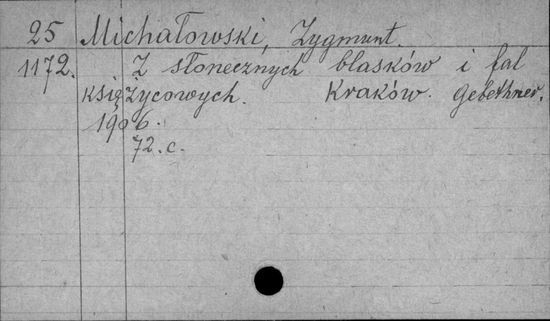 25 Michałowski, Zygmunt.
1172. Z słonecznych blasków i fal
księżycowych. Kraków. Gebethner.
1906.
72. c.